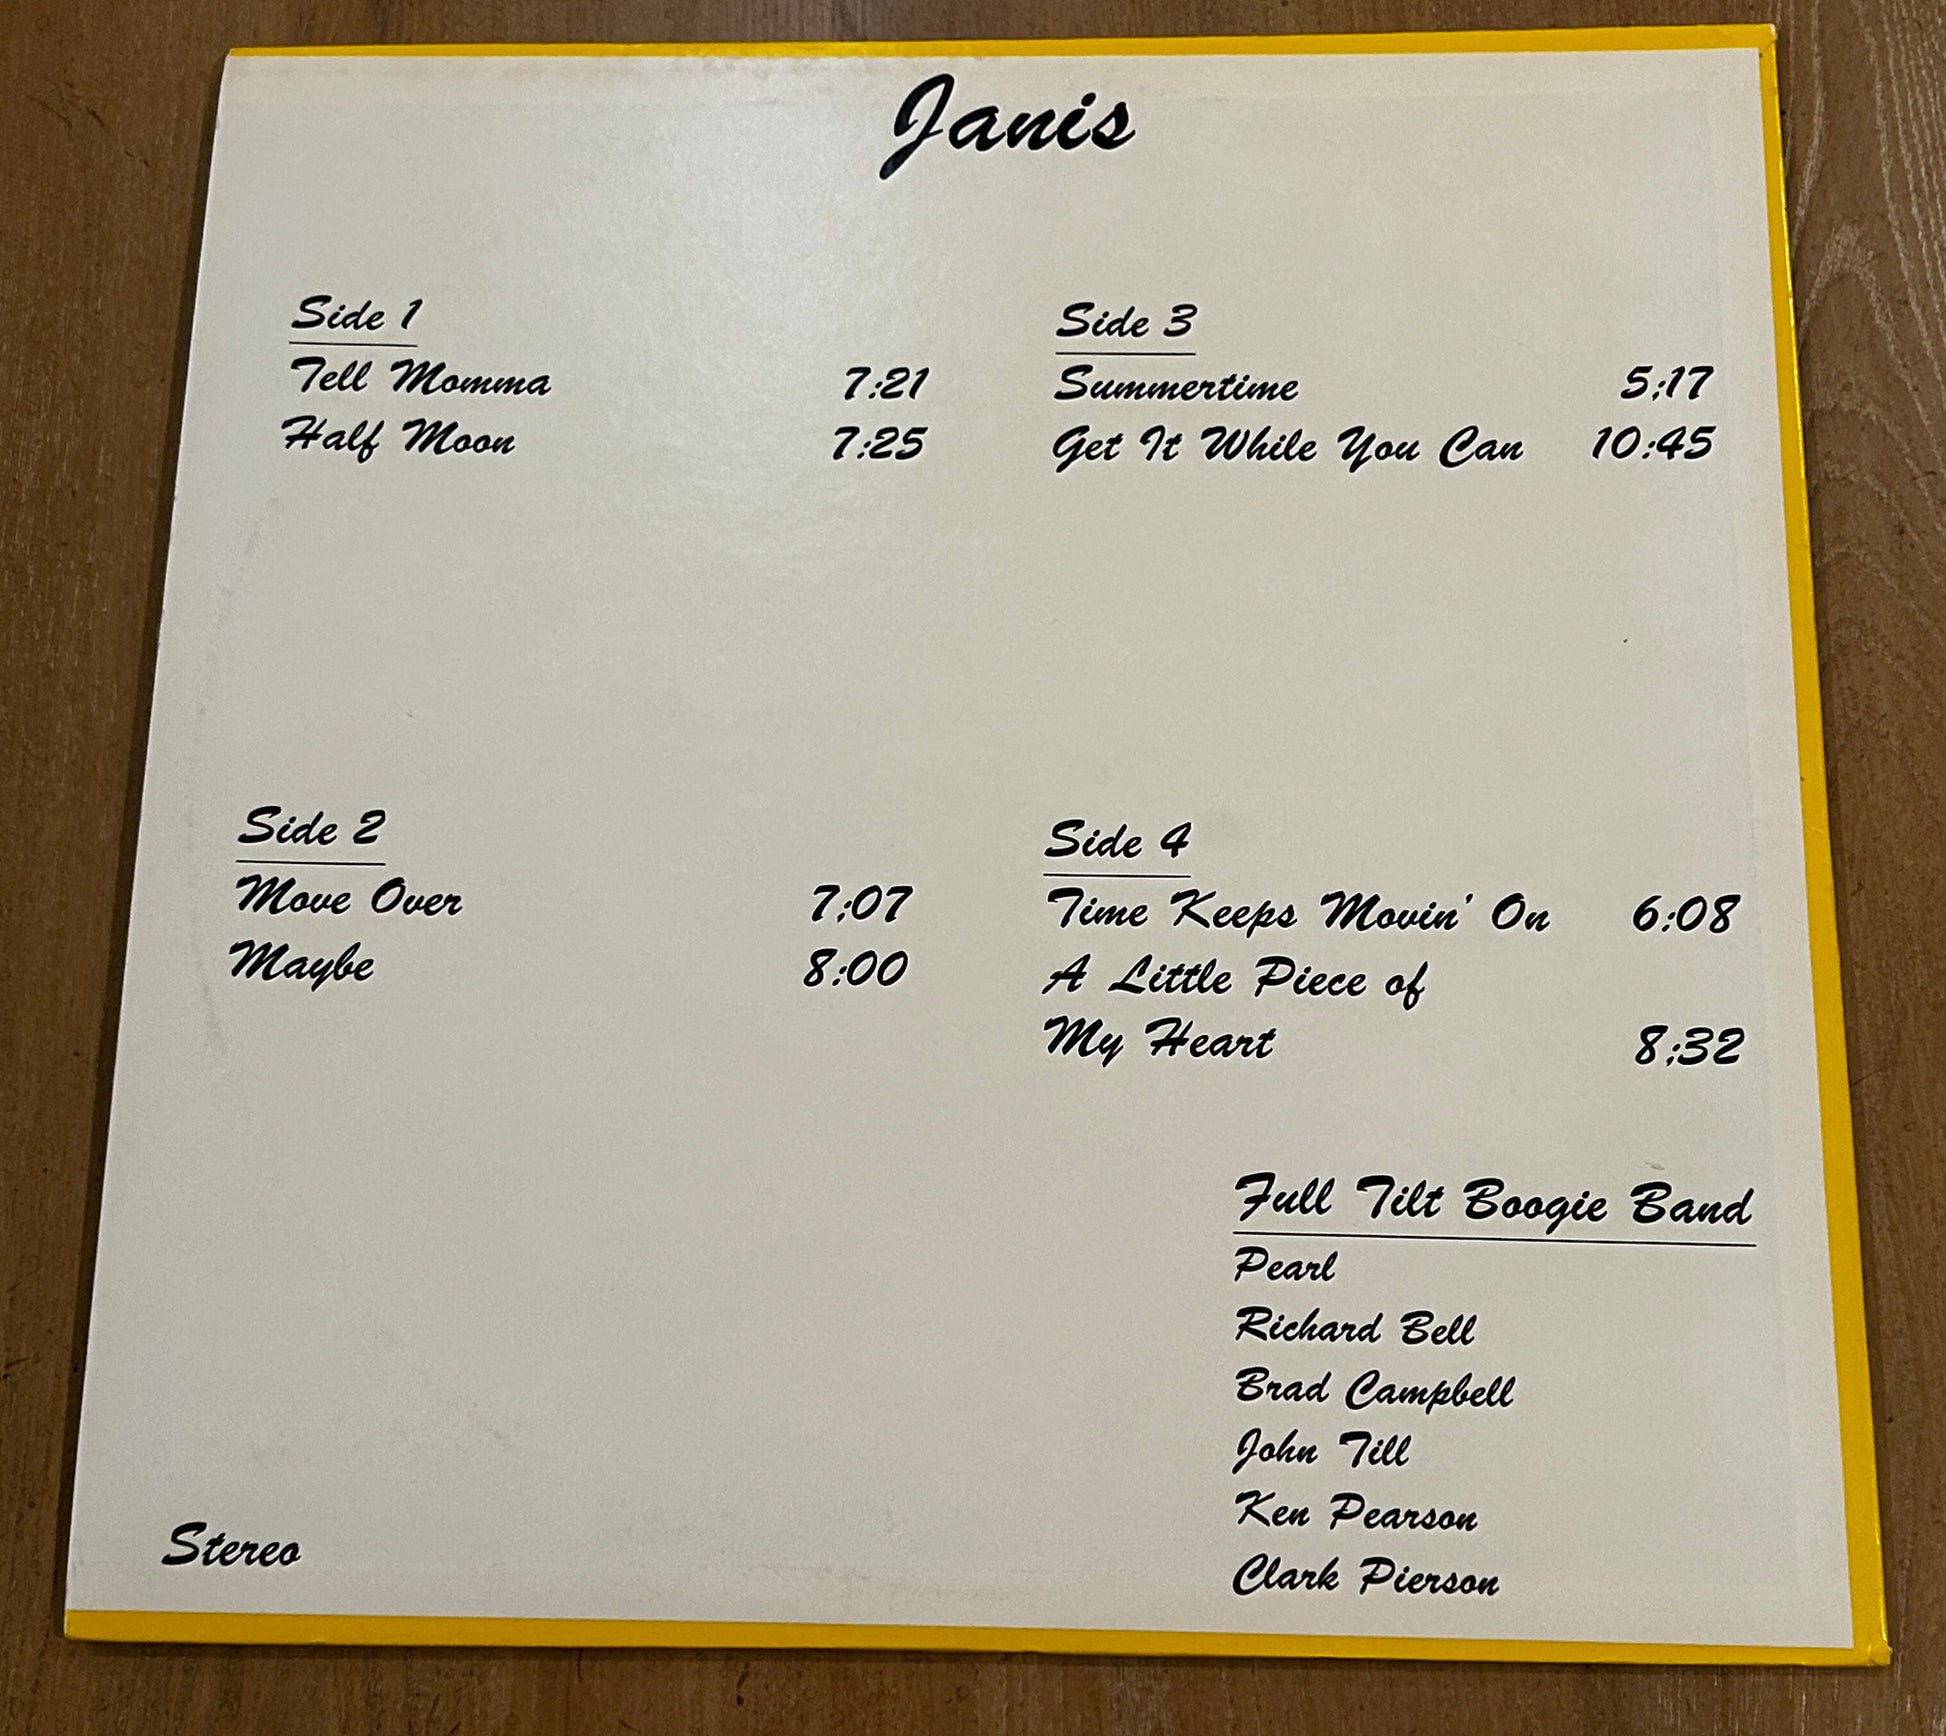 Janis
Side 1
Tell Momma 7:21
Half Moon 7:25
Side 2
Move Over 7:07
Maybe 8:00
Side 3
Summertime 5:17
Get It While You Can 10:45
Side 4
Time Keeps Movin' On 6:08
A Little Piece of
My Heart 8:32
Full Tilt Boogie Band
Pearl
Richard Bell
Brad Campbell
John Till
Ken Pearson
Clark Pierson
Stereo